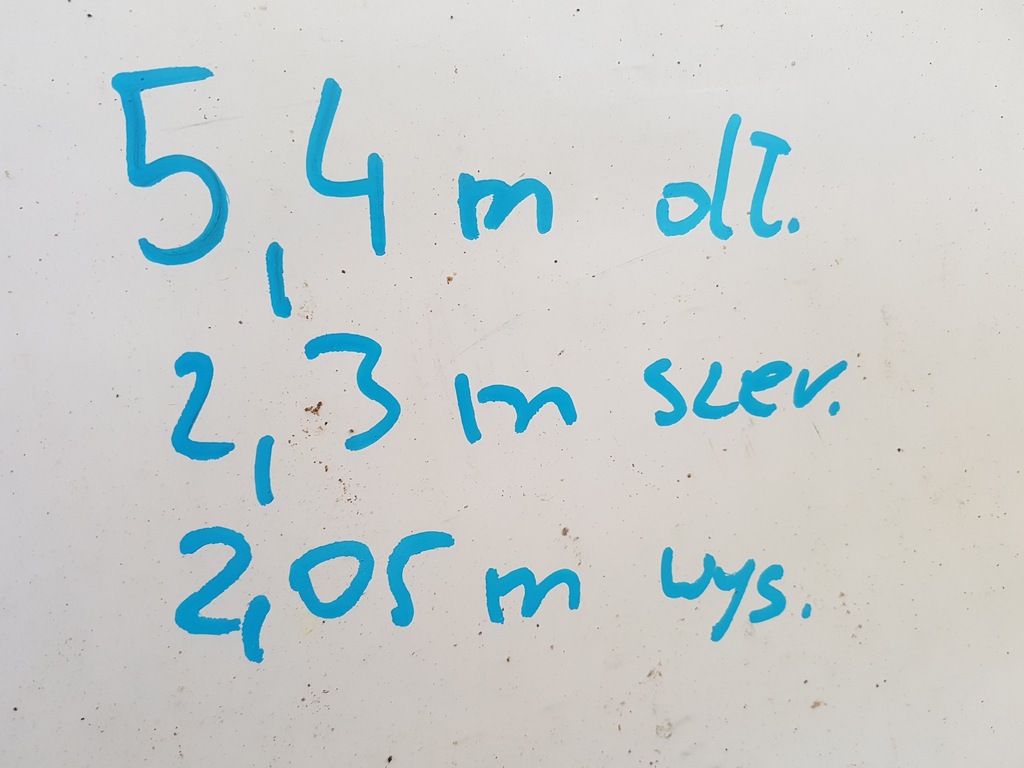 5,4 m dł.
2,3 m szer.
2,05 m wys.